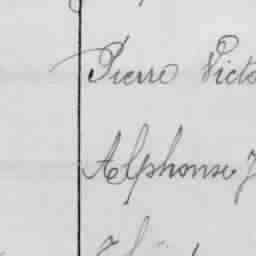 Pierre Victo
Alphonse J